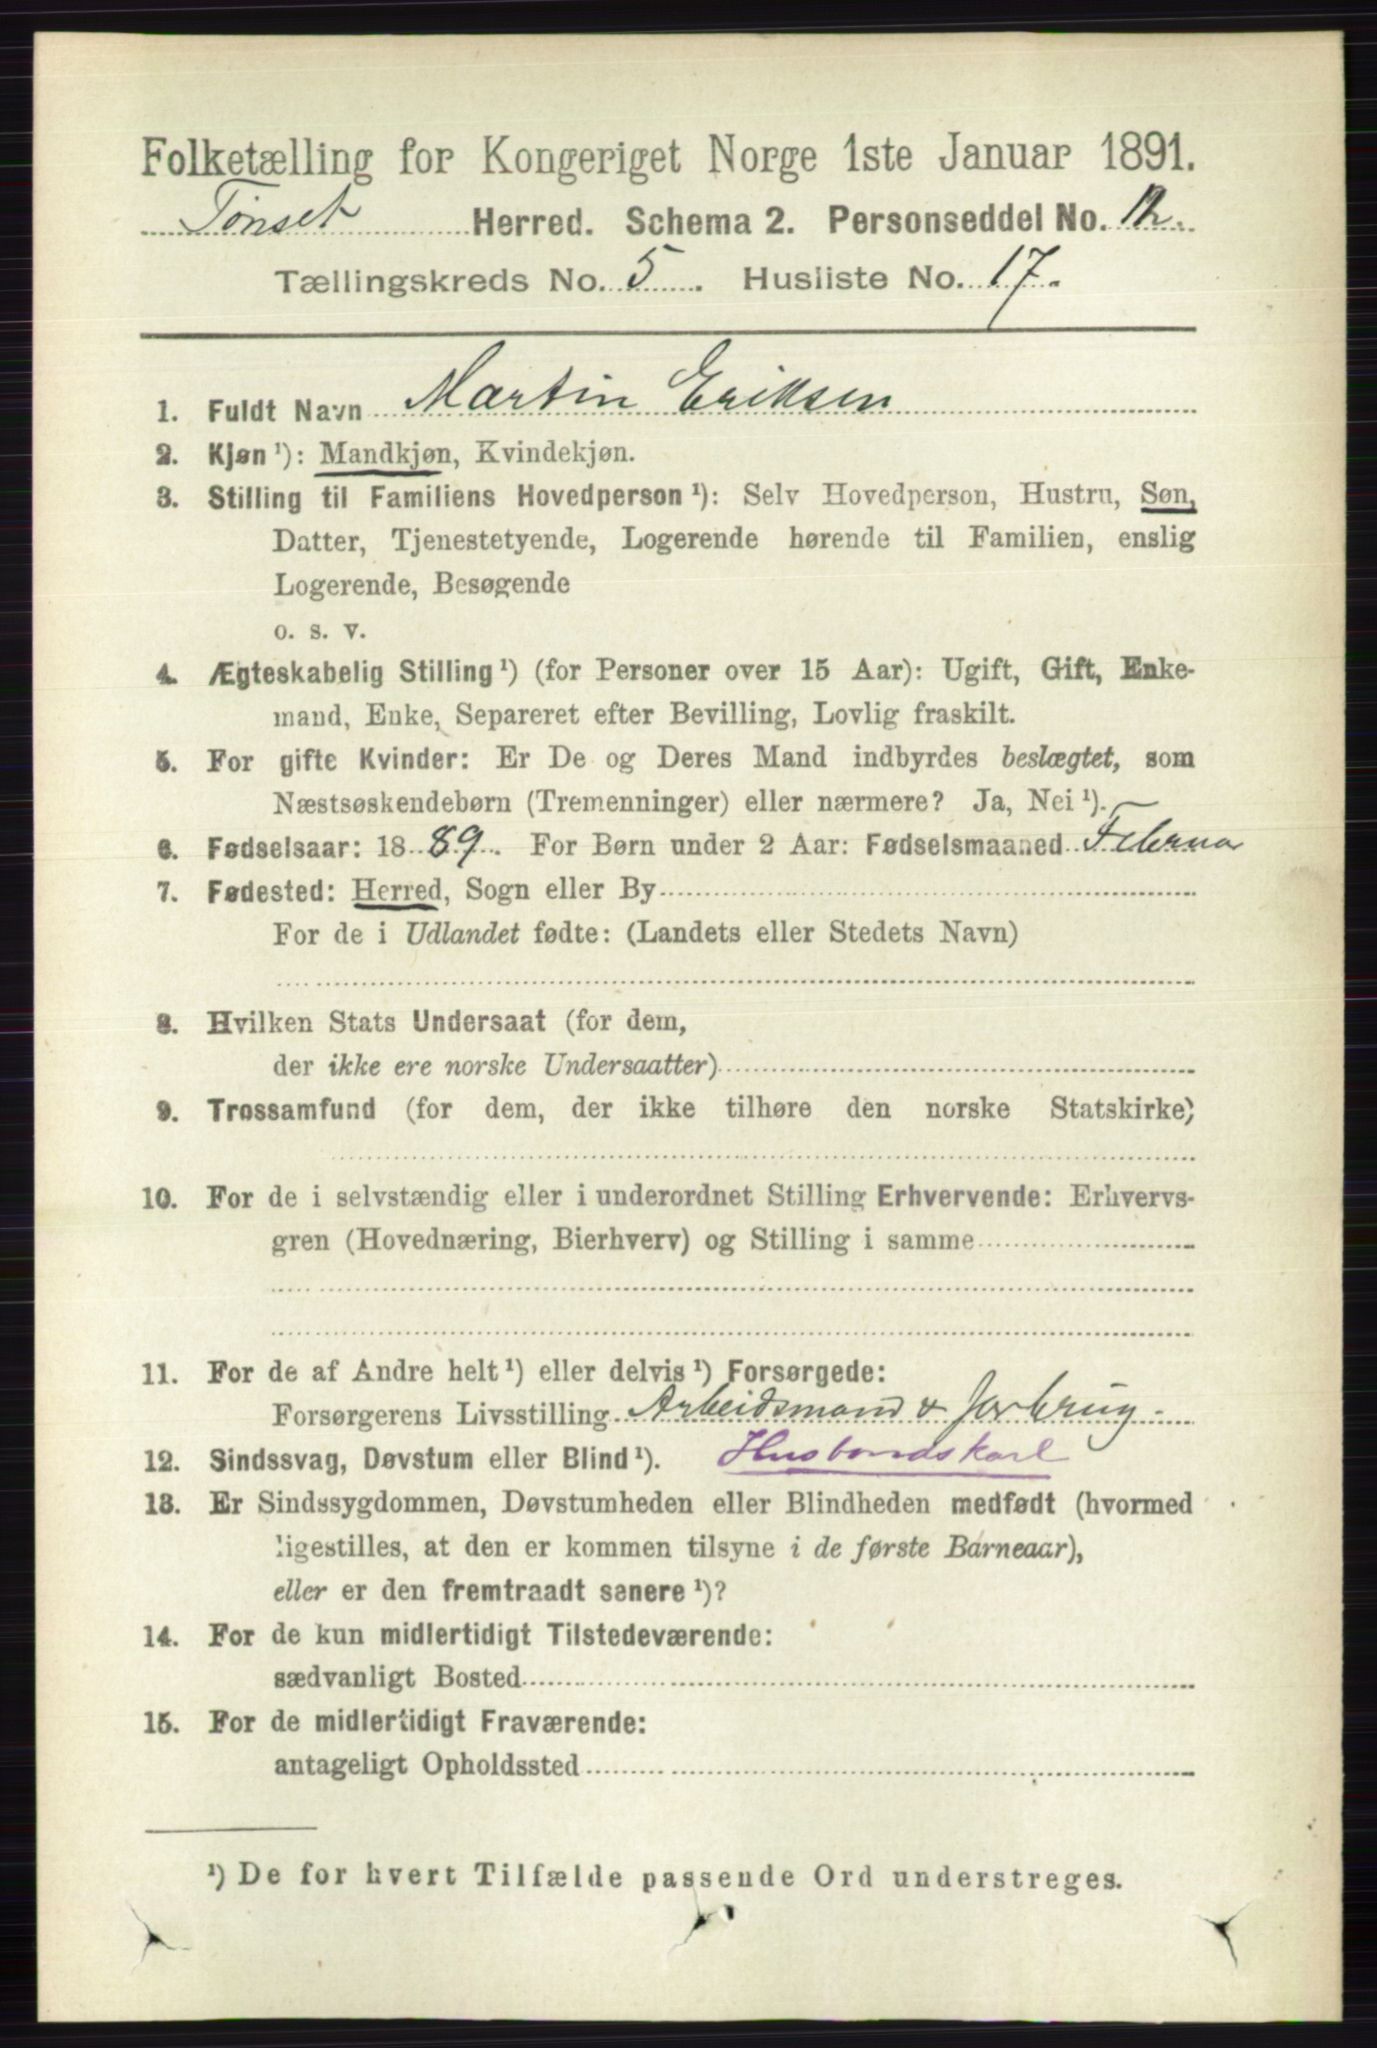 Folketælling for Kongeriget Norge 1ste Januar 1891.
Tønset Herred. Schema 2. Personseddel No. 12.
Tællingskreds No. 5. Husliste No. 17.
1. Fuldt Navn Martin Eriksen
2. Kjøn ¹): Mandkjøn, Kvindekjøn.
3. Stilling til Familiens Hovedperson ¹): Selv Hovedperson, Hustru, Søn,
Datter, Tjenestetyende, Logerende hørende til Familien, enslig
Logerende, Besøgende
o. s. v.
4. Ægteskabelig Stilling ¹) (for Personer over 15 Aar): Ugift, Gift, Enke-
mand, Enke, Separeret efter Bevilling, Lovlig fraskilt.
5. For gifte Kvinder: Er De og Deres Mand indbyrdes beslægtet, som
Næstsøskendebørn (Tremenninger) eller nærmere? Ja, Nei ¹).
6. Fødselsaar: 1889. For Børn under 2 Aar: Fødselsmaaned Februar
7. Fødested: Herred, Sogn eller By
For de i Udlandet fødte: (Landets eller Stedets Navn)
8. Hvilken Stats Undersaat (for dem,
der ikke ere norske Undersaatter)
9. Trossamfund (for dem, der ikke tilhøre den norske Statskirke)
10. For de i selvstændig eller i underordnet Stilling Erhvervende: Erhvervs-
gren (Hovednæring, Bierhverv) og Stilling i samme
11. For de af Andre helt ¹) eller delvis ¹) Forsørgede:
Forsørgerens Livsstilling Arbeidsmand & Jorbrug
12. Sindssvag, Døvstum eller Blind ¹). Husbondskarl
13. Er Sindssygdommen, Døvstumheden eller Blindheden medfødt (hvormed
ligestilles, at den er kommen tilsyne i de første Barneaar),
eller er den fremtraadt senere ¹)?
14. For de kun midlertidigt Tilstedeværende:
sædvanligt Bosted
15. For de midlertidigt Fraværende:
antageligt Opholdssted
¹) De for hvert Tilfælde passende Ord understreges.